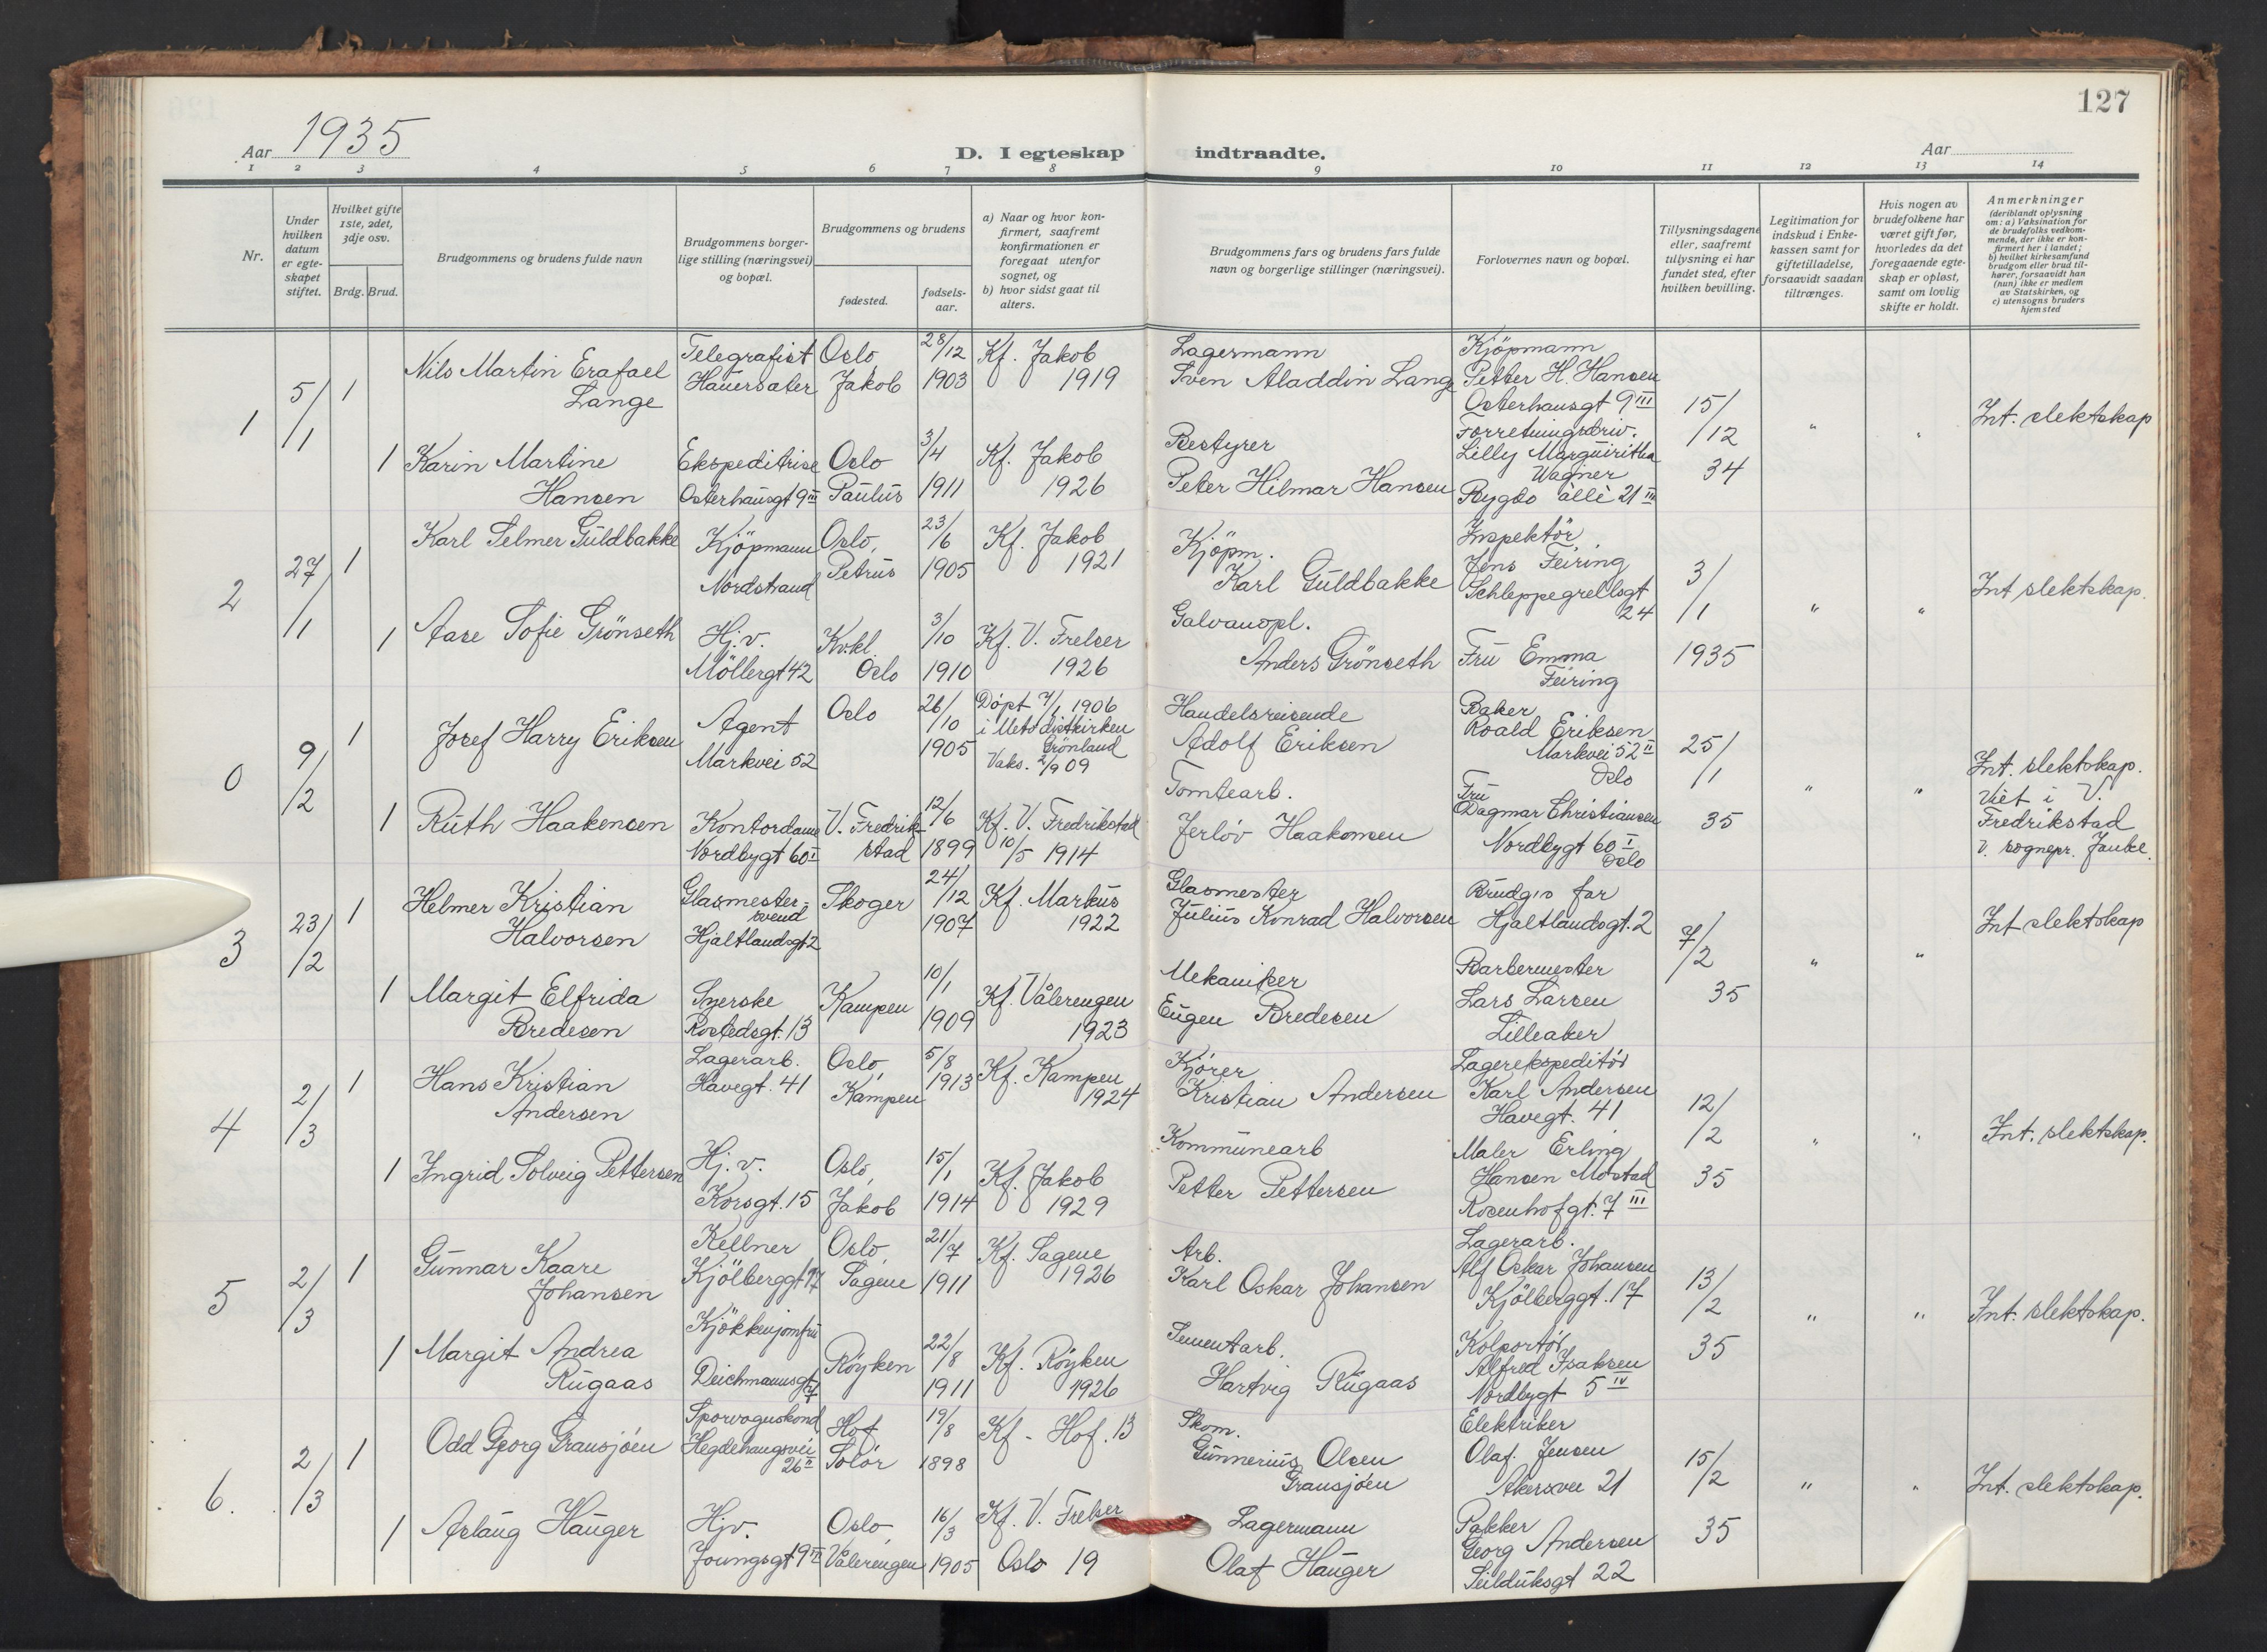 127
Aar 1935
D. I egteskap indtraadte.
Aar
1 2 3 4 5 6 7 8 9 10 11 12 13 14
Nr.
Under hvilken datum er egteskapet stiftet.
Hvilket gifte 1ste, 2det, 3dje osv.
Brdg. Brud.
Brudgommens og brudens fulde navn
Brudgommens borgerlige stilling (næringsvei) og bopæl.
Brudgommens og brudens
fødested.
fødselsaar.
a) Naar og hvor konfirmert, saafremt konfirmationen er foregaat utenfor sognet, og
b) hvor sidst gaat til alters.
Brudgommens fars og brudens fars fulde navn og borgerlige stillinger (næringsvei).
Forlovernes navn og bopæl.
Tillysningsdagene eller, saafremt tillysning ei har fundet sted, efter hvilken bevilling.
Legitimation for indskud i Enkekassen samt for giftetilladelse, forsaavidt saadan tiltrænges.
Hvis nogen av brudefolkene har været gift før, hvorledes da det foregaaende egteskap er opløst, samt om lovlig skifte er holdt.
Anmerkninger
(deriblandt oplysning om: a) Vaksination for de brudefolks vedkommende, der ikke er konfirmert her i landet; b) hvilket kirkesamfund brudgom eller brud tilhører, forsaavidt han (hun) ikke er medlem av Statskirken, og c) utensogns bruders hjemsted
1
5/1
1
Nils Martin Erafael
Lange
Telegrafist
Hauersæter
Oslo,
Jakob
28/12
1903
Kf. Jakob
1919
Lagermann
Sven Aladdin Lange
Kjöpmann
Petter H. Hansen
Osterhausgt 9 III
15/12
34
"
"
Int. slektskap
1
Karin Martine
Hansen
Ekspeditrise
Osterhausgt 9 III
Oslo
Paulus
3/4
1911
Kf. Jakob
1926
Bestyrer
Peter Hilmar Hansen
Forretningsdriv.
Lilly Marguiritha
Wagner
Bygdo allè 21 III
2
27/1
1
Karl Selmer Guldbakke
Kjöpmann
Nordstrand
Oslo,
Petrus
23/6
1905
Kf. Jakob
1921
Kjöpm.
Karl Guldbakke
Inspektör
Jens Feiring
Schleppegrellsgt
24
3/1
1935
"
"
Int slektskap.
1
Aase Sofie Grönseth
Hj.v.
Möllergt 42
Kv.kl.
Oslo
3/10
1910
Kf. V. Frelser
1926
Galvanopl.
Anders Grönseth
Fru Emma
Feiring
0
9/2
1
Josef Harry Eriksen
Agent
Markvei 52
Oslo
26/10
1905
Döpt 7/1 1906
i Metodistkirken
Grönland
Vaks. 2/9 09
Handelsreisende
Adolf Eriksen
Baker
Roald Eriksen
Markvei 52 II
Oslo
25/1
35
"
"
Int. slektskap.
Viet i V.
Fredrikstad
v. sognepr.
1
Ruth Haakensen
Kontordame
Nordbygt 60 I
V. Fredrik-
stad
12/6
1899
Kf. V. Fredrikstad
10/5 1914
Tomtearb.
Jerlöv Haakonsen
Fru
Dagmar Christiansen
Nordbygt 60 I
Oslo
3
23/2
1
Helmer Kristian
Halvorsen
Glasmester-
svend
Hjaltlandsgt 2
Skoger
24/12
1907
Kf. Markus
1922
Glasmester
Julius Konrad Halvorsen
Brudg.s far
Hjaltlandsgt. 2
7/2
35
"
"
Int slektskap
1
Margit Elfrida
Bredesen
Syerske
Rostedsgt. 13
Kampen
10/1
1909
Kf. Vålerengen
1923
Mekaniker
Eugen Bredesen
Barbermester
Lars Larsen
Lilleaker
4
2/3
1
Hans Kristian
Andersen
Lagerarb.
Havegt. 41
Oslo,
Kampen
5/8
1913
Kf. Kampen
1924
Kjörer
Kristian Andersen
Lagerekspeditör
Karl Andersen
Havegt. 41
12/2
35
"
"
Int. slektskap.
1
Ingrid Solveig Pettersen
Hj.v.
Korsgt. 15
Oslo,
Jakob
15/1
1914
Kf. Jakob
1929
Kommunearb
Petter Pettersen
Maler Erling
Hansen Mostad
Rosenhofgt. 7 III
5
2/3
1
Gunnar Kaare
Johansen
Kellner
Kjölberggt 17
Oslo,
Sagene
21/7
1911
Kf. Sagene
1926
Arb.
Karl Oskar Johansen
Lagerarb.
Alf Oskar Johansen
Kjölberggt. 17
13/2
35
"
"
Int. slektskap.
1
Margit Andrea
Rugaas
Kjökkenjomfru
Deichmannsgt 7
Röyken
22/8
1911
Kf. Röyken
1926
Sementarb.
Hartvig Rugaas
Kolportör
Alfred Isaksen
Nordbygt 5 IV
6.
2/3
1
Odd Georg Gransjöen
Sporvognskond
Hegdehaugsvei
26 II
Hof
Solör
19/8
1898
Kf - Hof. 13
Skom.
Gunnerius Olsen
Gransjöen
Elektriker
Olaf. Jensen
Akersvei 21
15/2
35
"
"
Int. slektskap.
1
Aslaug Hauger
Hjv.
Youngsgt 9 III
Oslo,
Vålerengen
16/3
1905
Kf. V. Frelser
Oslo 19
Lagermann
Olaf Hauger
Pakker
Georg Andersen
Seilduksgt 22